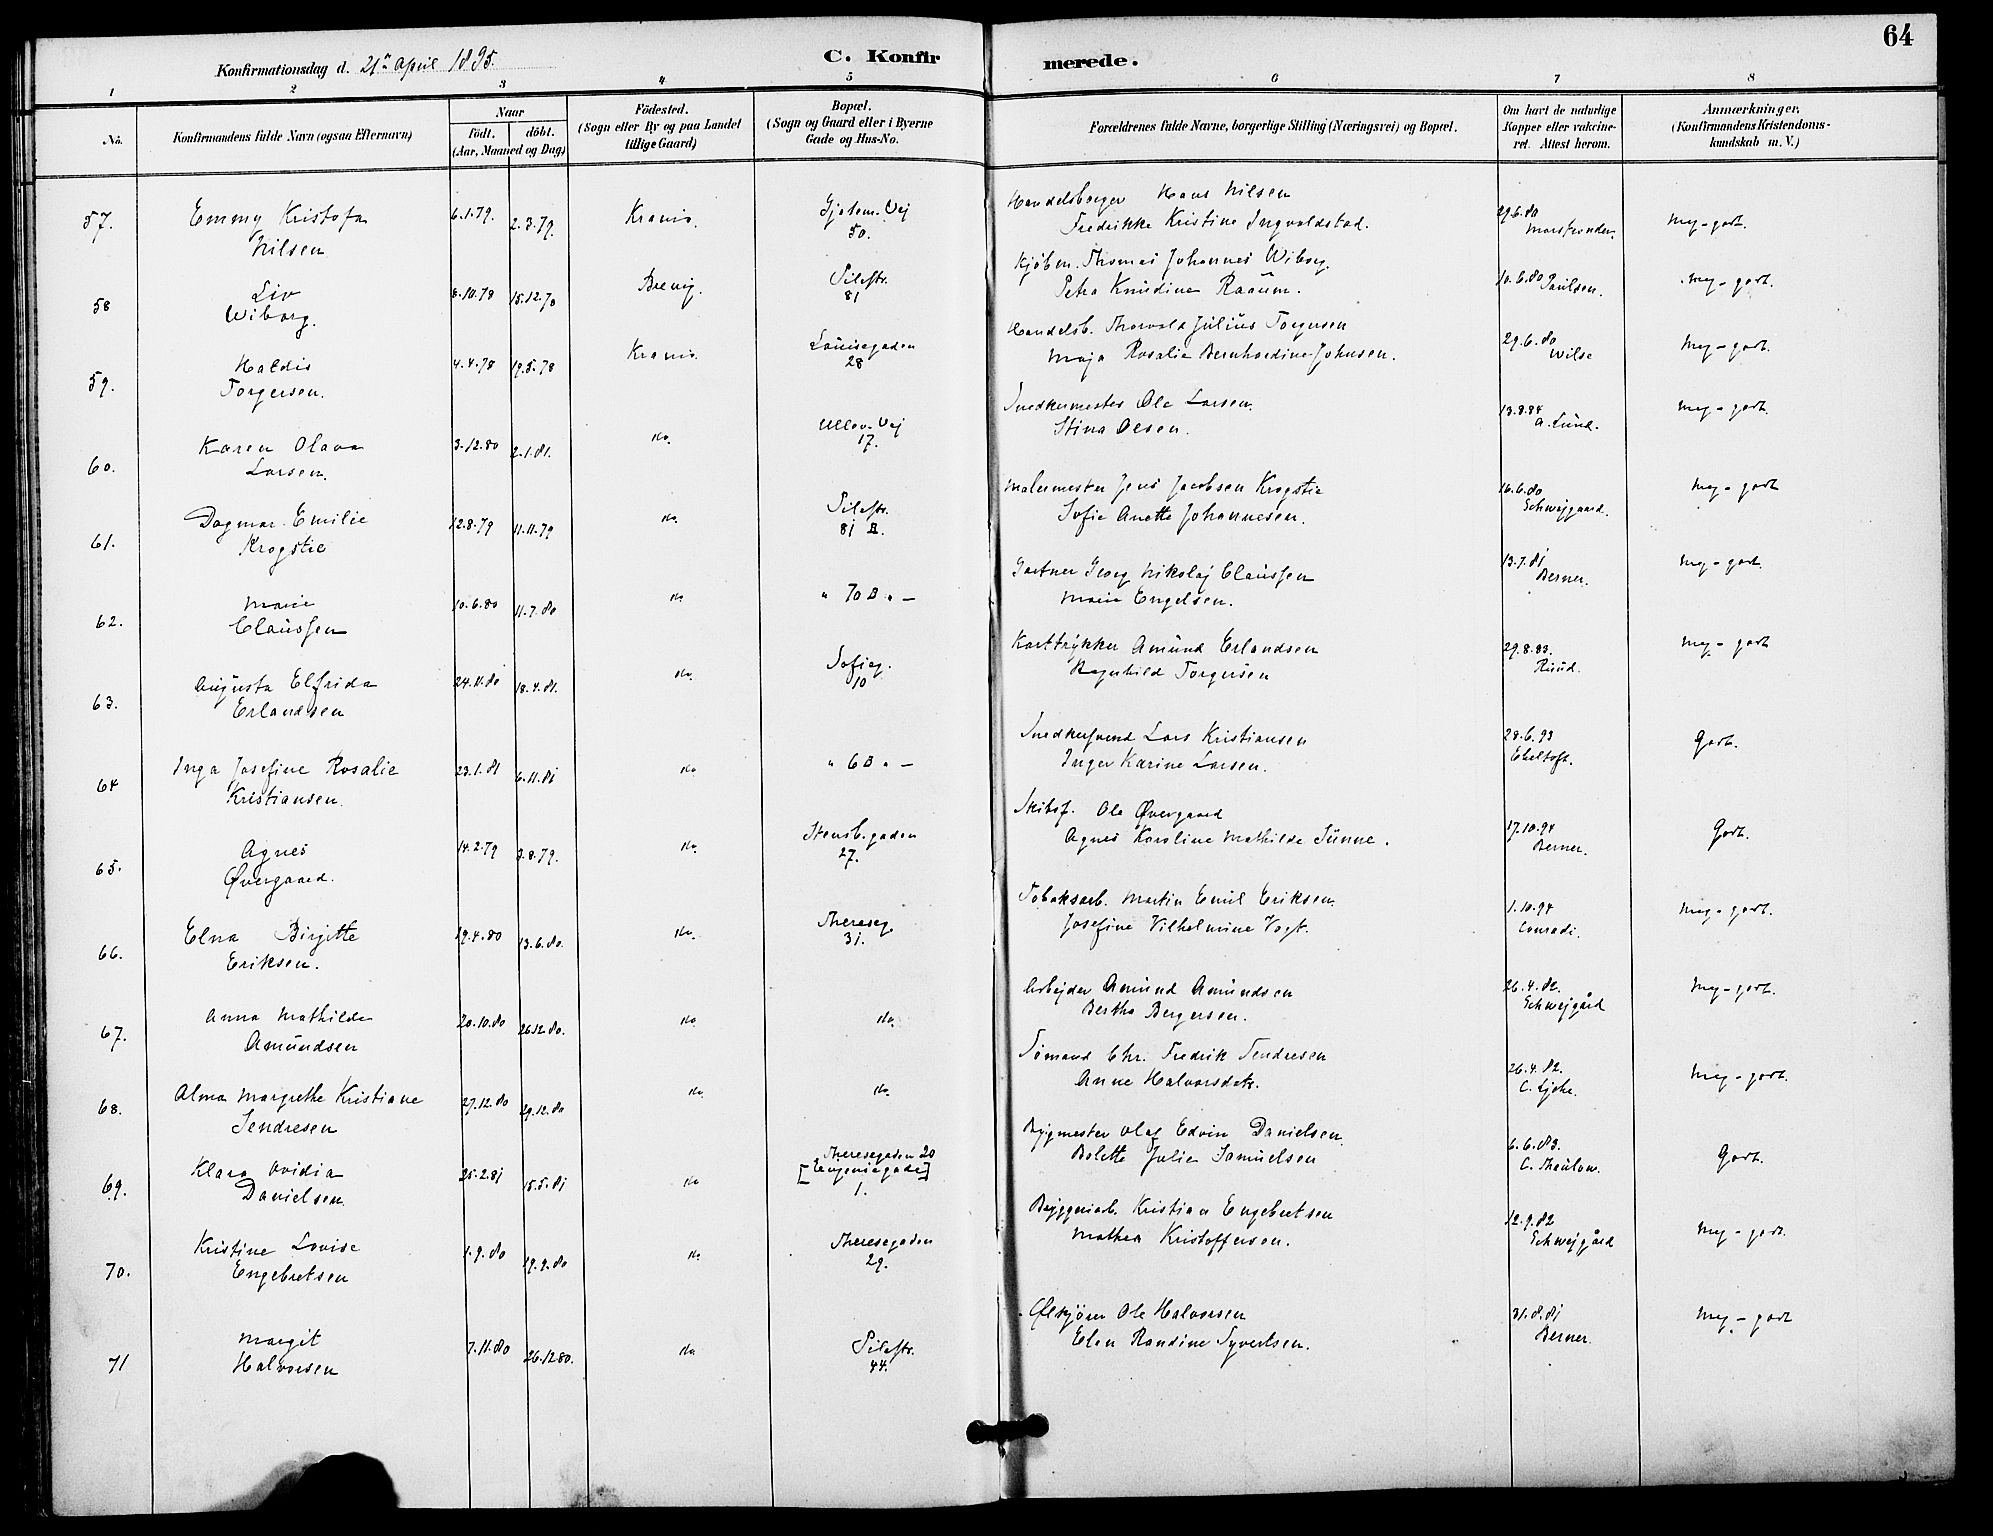 64
Konfirmationsdag d. 21de April 1895.
C. Konfirmerede.
1 2 3 4 5 6 7 8
No.
Konfirmandens fulde Navn (ogsaa Efternavn)
Naar
födt. döbt.
(Aar, Maaned og Dag)
Födested.
(Sogn eller By og paa Landet
tillige Gaard)
Bopæl.
(Sogn og Gaard eller i Byerne
Gade og Hus-No.
Forældrenes fulde Navne, borgerlige Stilling (Næringsvei) og Bopæl.
Om havt de naturlige
Kopper eller vaccine-
ret. Attest herom.
Anmærkninger.
(Konfirmandens Kristendoms-
kundskab m. V.)
57. Emmy Kristofa 6.1.79. 2.3.79. Krania. Gjetem. Vej Handelsborger Hans Nilsen 29.6.80 Meg-godt.
Nilsen 50. Fredrikke Kristine Ingvaldstad.
58 Liv 8.10.78 15.12.78 Brevig. Pilestr. Kjøbm. Thomas Johannes Wiborg. 10.6.80 Paulsen. Meg-godt.
Wiborg. 81 Petra Knudine Raaum.
59. Haldis 4.4.78 19.5.78 Krania. Louisegaden Handelsb. Thorvald Julius Torgersen 29.6.80 Meg-godt.
Torgersen. 28 Maja Rosalie Bernhardine Johnsen. Wilse
60. Karen Olava 3.12.80 2.1.81. do. Ullev. Vej Snedkermester Ole Larsen. 13.8.84 Meg-godt.
Larsen. 17. Stina Olsen. A. Lund.
61. Dagmar Emilie 12.8.79 11.11.79 do. Pilestr. Malermester Jens Jacobsen Krogstie 16.6.80 Meg-godt
Krogstie 81 B. Sofie Anette Johannesen. Schwejgaard.
62. Marie 10.6.80 11.7.80 do " 70 B " — Gartner Georg Nikolaj Claussen 13.7.81 Meg-godt.
Claussen Marie Engelsen. Berner.
63. Augusta Elfrida 24.11.80 18.4.81. do. Sofieg. Korttrykker Amund Erlandsen 29.8.83. Meg-godt
Erlandsen 10 Ragnhild Torgersen Ruud.
64 Inga Josefine Rosalie 23.1.81 6.11.81 do " 6 B " — Snedkersvend Lars Kristiansen 28.6.93 Godt.
Kristiansen. Inger Karine Larsen. Ebeltoft.
65. Agnes 14.2.79 3.8.79. do. Stensb.gaden Skibsf. Ole Øvergaard 17.10.94 Godt.
Øvergaard. 27. Agnes Karoline Mathilde Sünne. Berner.
66. Elna Birgitte 19.4.80 13.6.80. do. Thereseg. Tobaksarb. Martin Emil Eriksen. 1.10.94 Meg-godt.
Eriksen. 31. Josefine Vilhelmine Vogt. Conradi.
67. Anna Mathilde 20.10.80 26.12.80. do do. Arbejder Amund Amundsen 26.4.82. Meg-godt.
Amundsen Bertha Bergersen. Schwejgård
68. Alma Margrethe Kristiane 27.12.80 29.12.80 do do. Sømand Chr. Fredrik Sendresen 26.4.82. Meg-godt.
Sendresen Anne Halvorsdatr.
69. Klara Ovidia 25.2.81 15.5.81 do Theresegaden 20 Bygmester Olaf Edvin Danielsen 6.6.83. Godt.
Danielsen. [Eugeniagade] Bolette Julie Samuelsen C. Thaulow.
1.
70. Kristine Lovise 1.9.80 19.9.80 do Theresegaden Bryggeriarb. Kristian Engebretsen 12.9.82 Meg-godt.
Engebretsen 29. Mathea Kristoffersen. Schwejgård
71 Margit 7.11.80 26.12.80. do. Pilestr. Ølkjører Ole Halvorsen 31.8.81 Meg-godt
Halvorsen 44. Elen Randine Syvertsen. Berner.